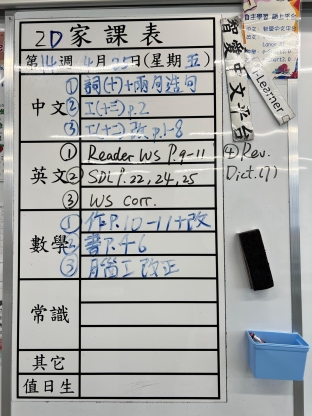 2D 家課表
第14週 4月25日(星期五)
中文 ① 詞(十)+兩句造句
② 工(十三)p.2
③ 工(十二)改 p.1-8
英文 ① Reader WS P.9-11
② SDL P.22,24,25
③ WS corr.
④ Rev. Dict.(7)
數學 ① 作P.10-11+改
② 書P.46
③ 改正
常識
其它
值日生
智愛中文平台
e-Learner
自主學習 網上平台